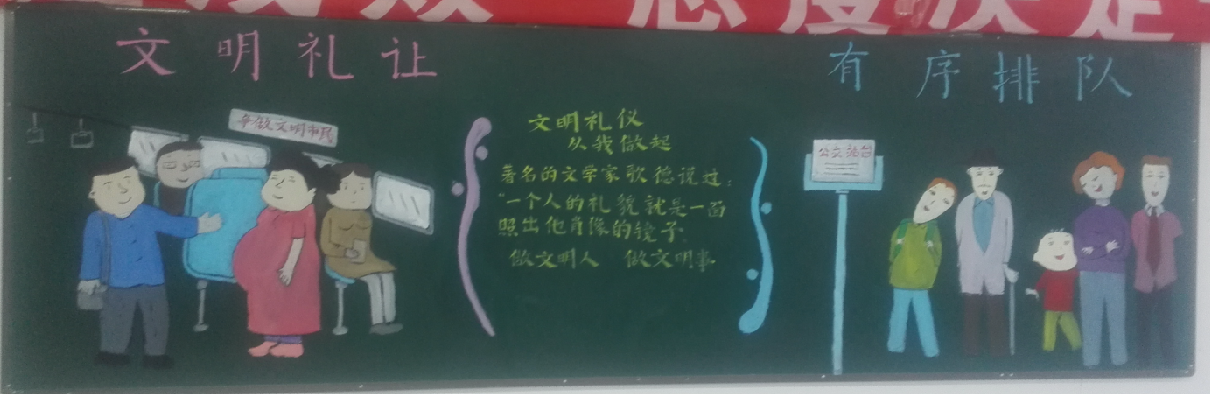 态度决定
文明礼让
有序排队
争做文明市民
文明礼仪
从我做起
著名的文学家歌德说过：
“一个人的礼貌就是一面
照出他肖像的镜子。
做文明人 做文明事
公交站台